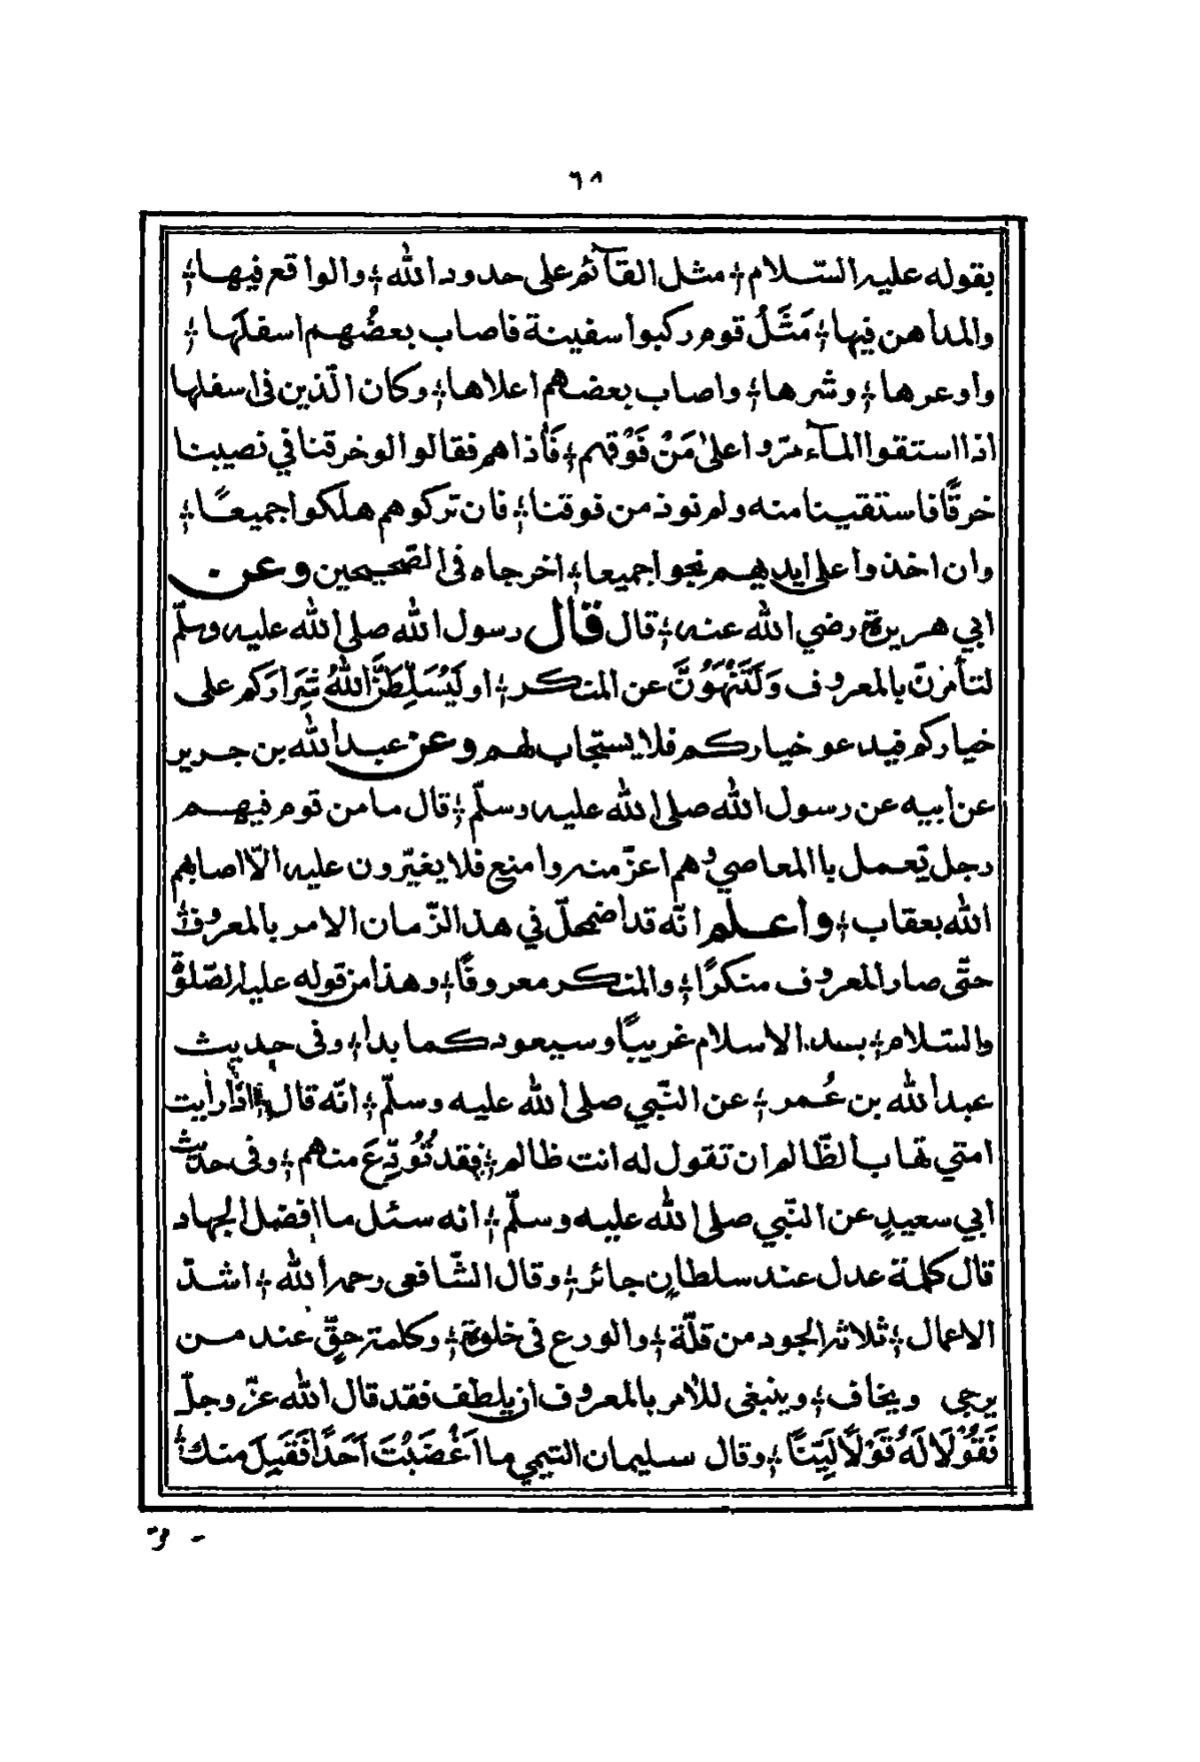 ٦٨
بقوله عليه السّلام؛ مثل القآئم على حدود الله؛ والواقع فيها؛
والمداهن فيها؛ مَثَلُ قوم ركبوا سفينة فاصاب بعضُهم اسفلَها؛
وأوعرها؛ وشرها؛ واصاب بعضهم اعلاها؛ وكان الّذين فى اسفلها
اذا استقوا المآء مرّوا على مَنْ فَوْقهم؛ فَأذاهم فقالوا لو خرقنا في نصيبنا
خرقًا فاستقينا منه ولم نوذ من فوقنا؛ فان تركوهم هلكوا جميعًا؛
وان اخذوا على ايديهم نجوا جميعا؛ اخرجاه فى الصّحيحين وعن
ابي هريرة رضي الله عنه؛ قال قال رسول الله صلى الله عليه وسلّم
لتأمرنّ بالمعروف وَلَتَنْهَوُنَّ عن المنكر؛ او لَيُسَلِّطَنَّ اللهُ شِرَارَكم على
خياركم فيدعو خياركم فلا يستجاب لهم وعن عبد الله بن جرير
عن أبيه عن رسول الله صلى الله عليه وسلّم؛ قال ما من قوم فيهم
رجل يَعمل باالمعاصي وهم اعزّ منه وامنع فلا يغيّرون عليه الّا اصابهم
الله بعقاب؛ واعلم انّه قد اضمحلّ في هذ الزّمان الامر بالمعروف؛
حتّى صار المعروف منكرًا؛ والمنكر معروفًا؛ وهذا من قوله عليه الصّلوة
والسّلام؛ بدء الاسلام غريبًا وسيعود كما بدا؛ وفى حديث
عبد الله بن عُمر؛ عن النّبي صلى الله عليه وسلّم؛ انّه قال؛ اذا رأيت
امتي تهاب الظّالم ان تقول له انت ظالم؛ فقد تُوُدِّعَ منهم؛ وفى حديث
ابي سعيدٍ عن النّبي صلى الله عليه وسلّم؛ انه سئل ما افضل الجهاد
قال كلمة عدل عند سلطانٍ جائر؛ وقال الشّافعى رحمه الله؛ اشدّ
الاعمال؛ ثلاثه الجود من قلّة؛ والورع فى خلوة؛ وكلمة حقٍّ عند من
يرجى ويخاف؛ وينبغى للأمر بالمعروف ان يلطف فقد قال الله عزّ وجلّ
فَقُوْلَا لَهُ قَوْلًا لَيِّنًا؛ وقال سليمان التيمي ما اَغْضَبْتَ اَحَدًا فَقَبِلَ منك؛